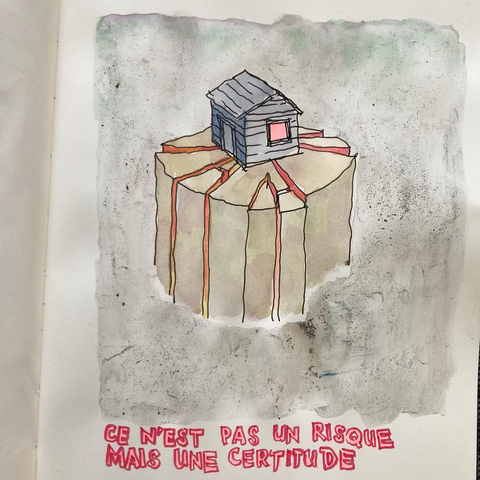 CE N'EST PAS UN RISQUE
MAIS UNE CERTITUDE